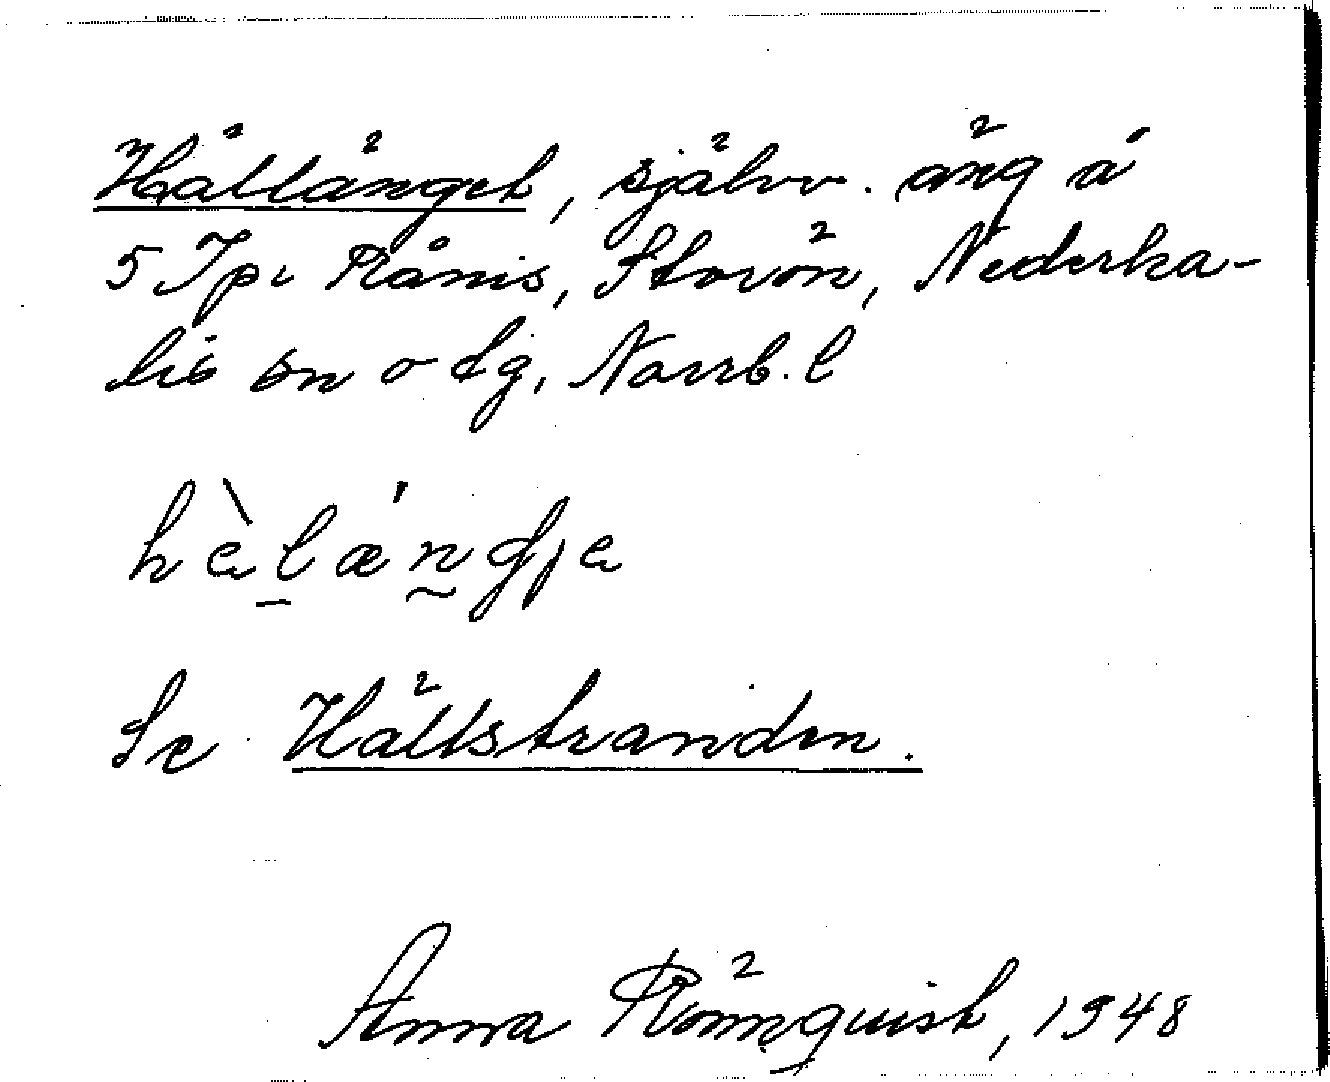 Hällänget, självv. äng å
5 Jpi Rånis, Storön, Nederka-
lix sn o dg, Norrb. l
hèlændje
Se Hällstranden.
Anna Rönnquist, 1948